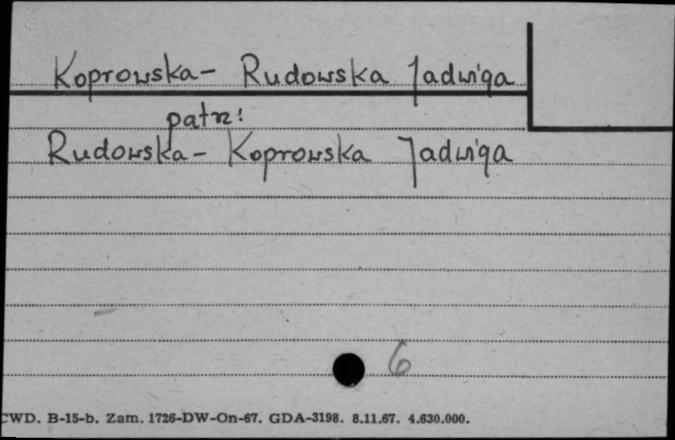 Koprowska- Rudowska Jadwiga
patrz:
Rudowska- Koprowska Jadwiga
6
CWD. B-15-b. Zam. 1726-DW-On-67. GDA-3198. 8.11.67. 4.630.000.